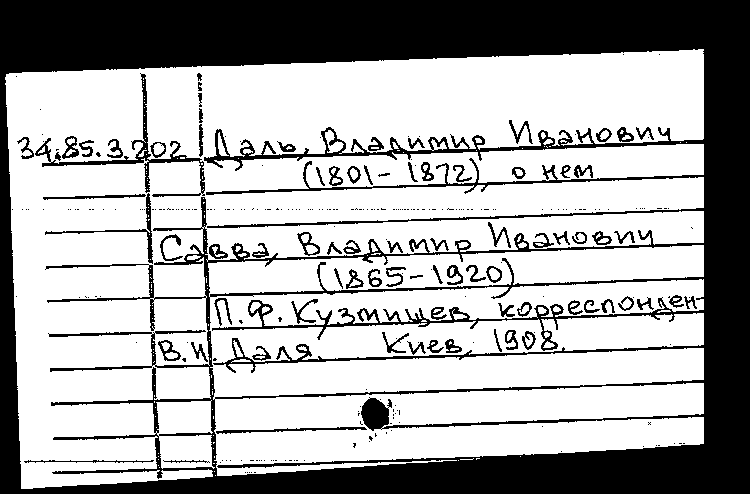 34.85.3.202 Даль, Владимир Иванович
(1801-1872), о нем
Савва, Владимир Иванович
(1865-1920)
П. Ф. Кузмищев, корреспонден-
В. И. Даля. Киев, 1908.